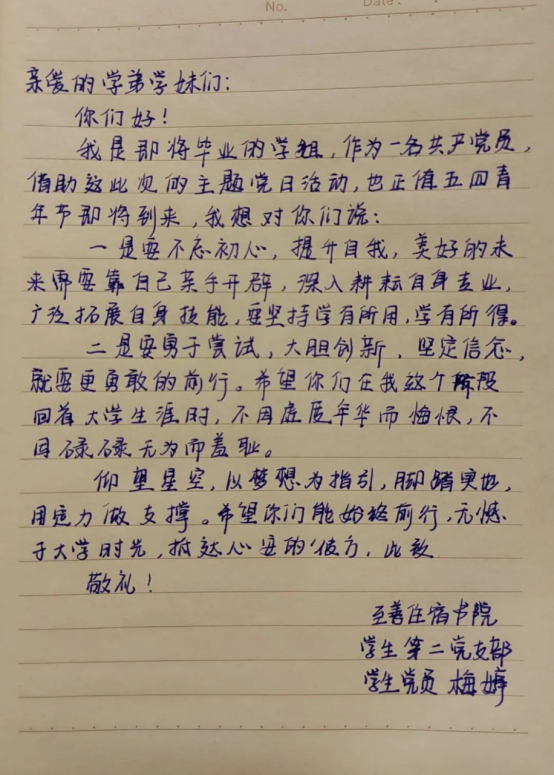 No.
Date.
亲爱的学弟学妹们:
你们好!
我是即将毕业的学姐,作为一名共产党员,
借助这此次的主题党日活动,也正值五四青
年节即将到来,我想对你们说:
一是要不忘初心,提升自我,美好的未
来需要靠自己亲手开辟,深入耕耘自身专业,
广泛拓展自身技能,要坚持学有所用,学有所得。
二是要勇于尝试,大胆创新,坚定信念,
就要更勇敢的前行。希望你们在我这个阶段
回首大学生涯时,不因虚度年华而悔恨,不
因碌碌无为而羞耻。
仰望星空,以梦想为指引,脚踏实地,
用努力做支撑。希望你们能始终前行,无憾
于大学时光,抵达心要的彼方,此致
敬礼!
至善住宿书院
学生第二党支部
学生党员 梅婷